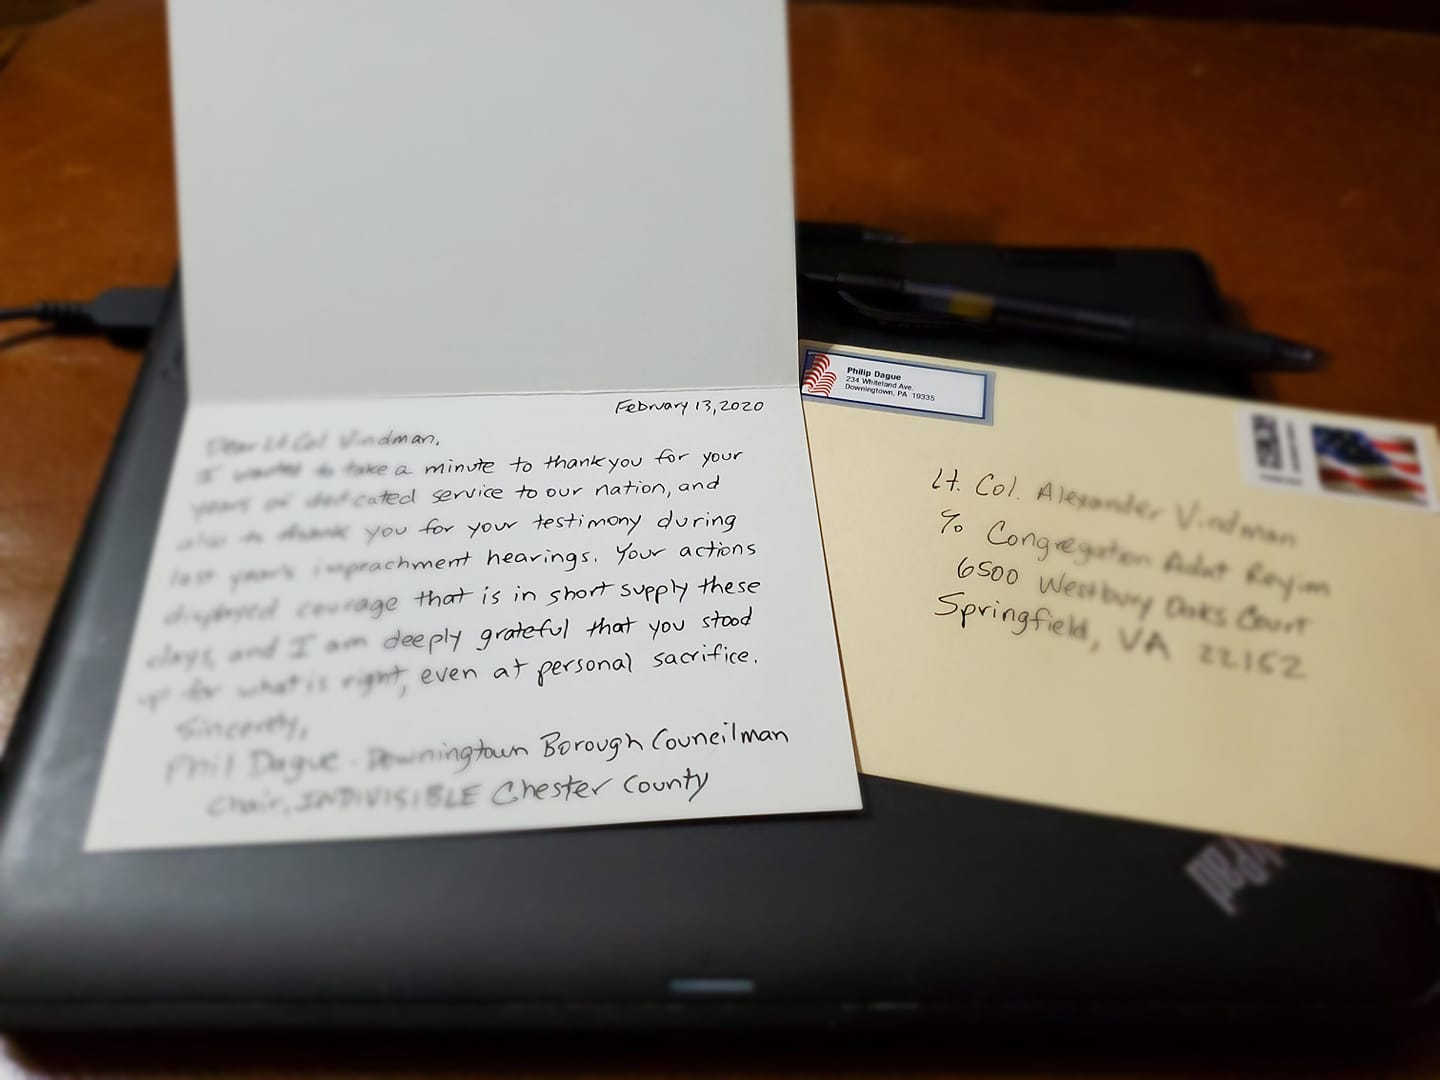 February 13, 2020
Dear Lt. Col Vindman,
I wanted to take a minute to thank you for your
years of dedicated service to our nation, and
also to thank you for your testimony during
last year's impeachment hearings. Your actions
displayed courage that is in short supply these
days, and I am deeply grateful that you stood
up for what is right, even at personal sacrifice.
Sincerely,
Phil Dague - Downingtown Borough Councilman
Chair, INDIVISIBLE Chester County
Philip Dague
234 Whiteland Ave.
Downingtown, PA 19335
Lt. Col. Alexander Vindman
c/o Congregation Adat Reyim
6500 Westbury Oaks Court
Springfield, VA 22152